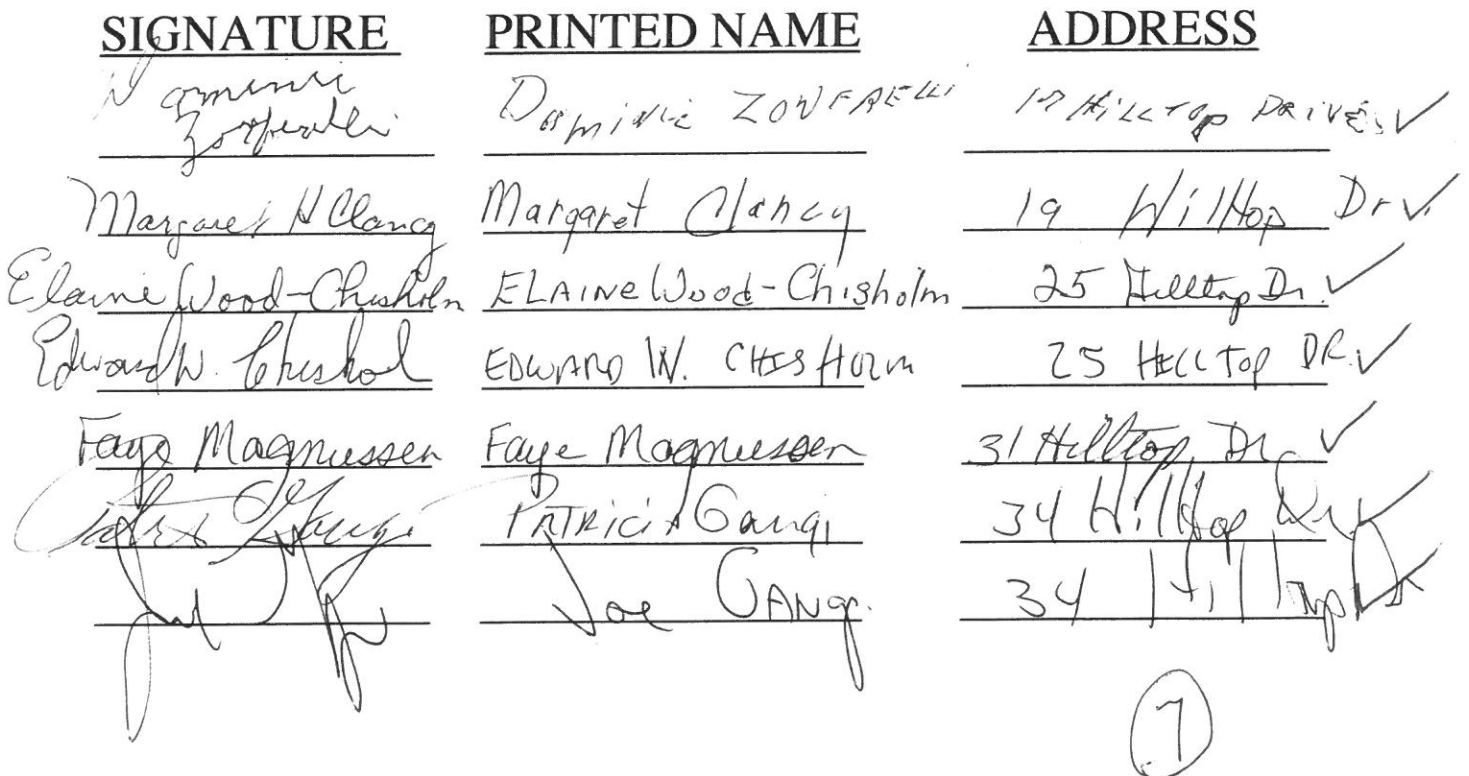 SIGNATURE PRINTED NAME ADDRESS
Dominic Zonfrelli Dominic ZONFRELLI 17 HILLTOP DRIVE ✓
Margaret H Clancy Margaret Clancy 19 Hilltop Dr ✓
Elaine Wood-Chisholm ELAINE Wood-Chisholm 25 Hilltop Dr. ✓
Edward W. Chishol EDWARD W. CHISHOLM 25 HILLTOP DR. ✓
Faye Magnussen Faye Magnussen 31 Hilltop Dr ✓
Gangi PATRICIA Gangi 34 Hilltop Dr ✓
Joe GANGI 34 Hilltop Dr ✓
7